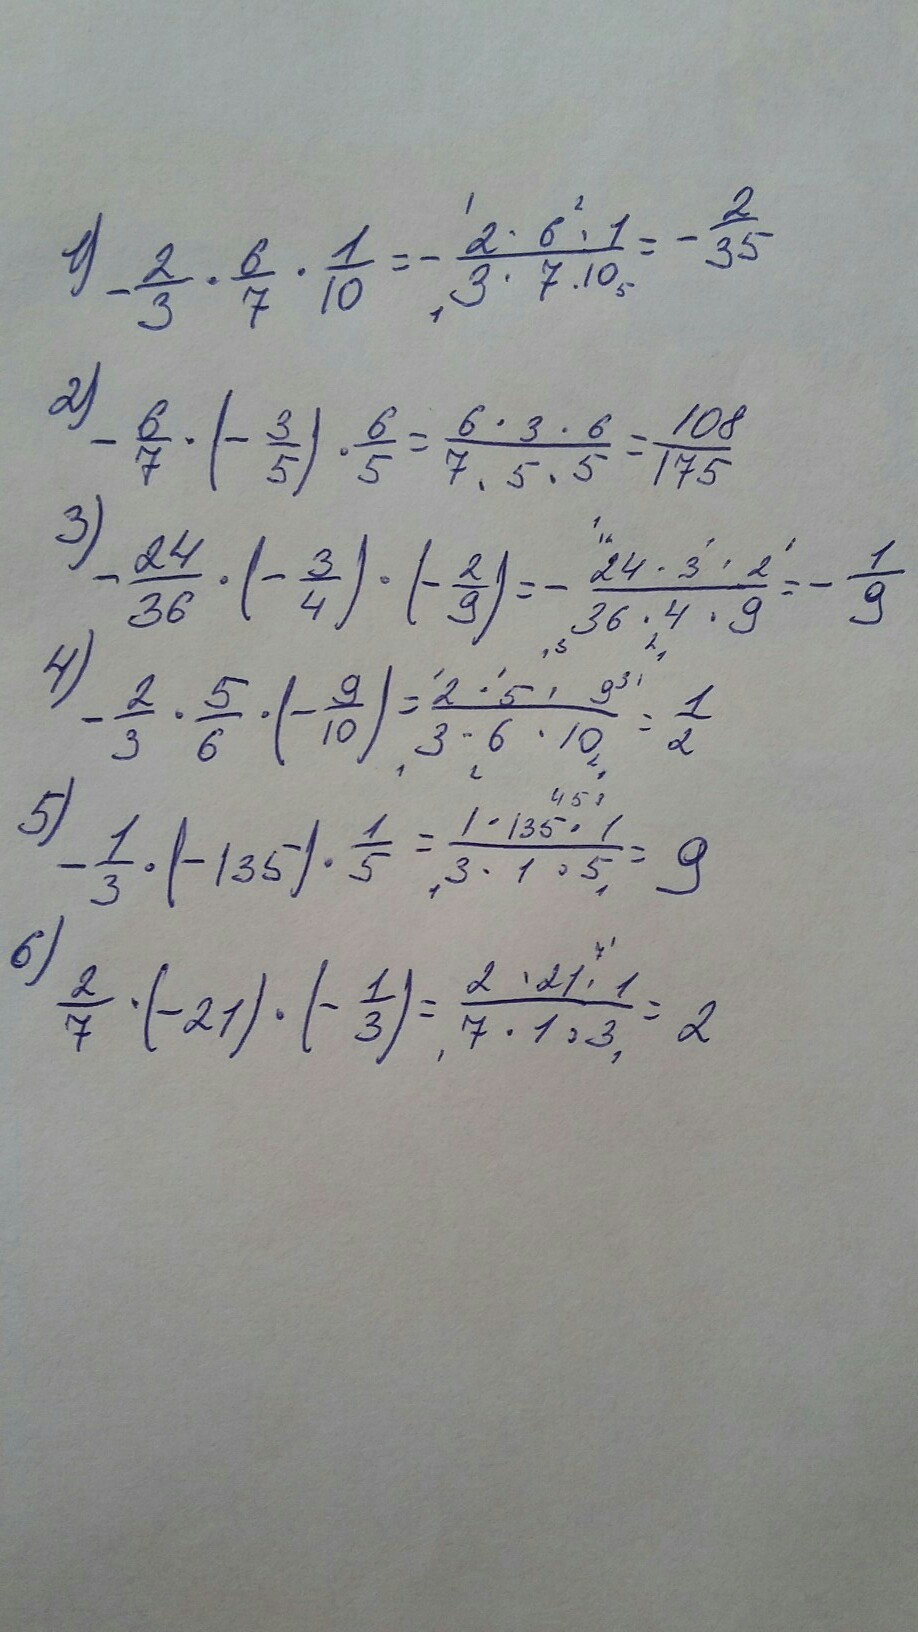 1) -2/3 · 6/7 · 1/10 = - 2 · 6 · 1 / 3 · 7 · 10 = - 2/35
2) -6/7 · (-3/5) · 6/5 = 6 · 3 · 6 / 7 · 5 · 5 = 108/175
3) -24/36 · (-3/4) · (-2/9) = - 24 · 3 · 2 / 36 · 4 · 9 = - 1/9
4) -2/3 · 5/6 · (-9/10) = 2 · 5 · 9 / 3 · 6 · 10 = 1/2
5) -1/3 · (-135) · 1/5 = 1 · 135 · 1 / 3 · 1 · 5 = 9
6) 2/7 · (-21) · (-1/3) = 2 · 21 · 1 / 7 · 1 · 3 = 2